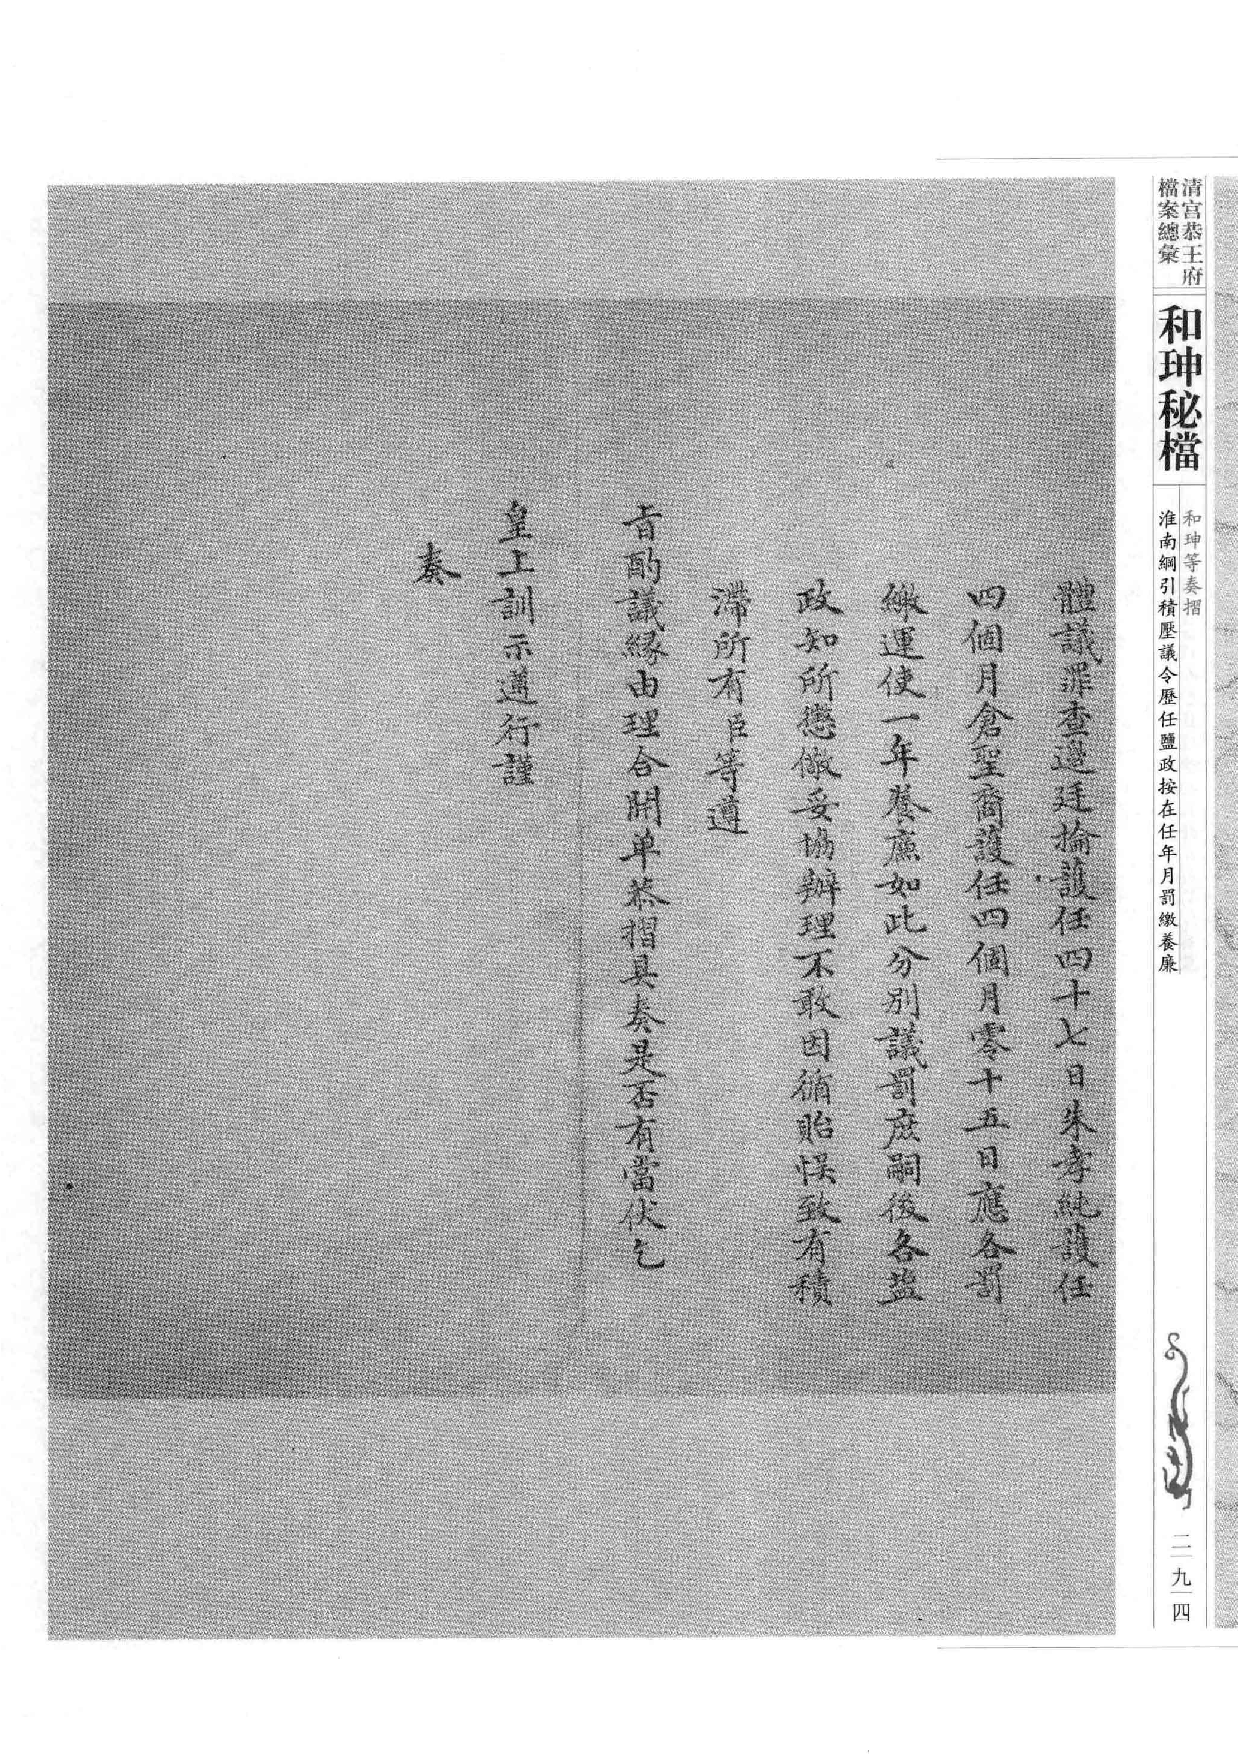 清宮恭王府
檔案總彙
和珅秘檔
和珅等奏摺
淮南綱引積壓議令歷任鹽政按在任年月罰繳養廉
二九四
體議罪查邊廷掄護任四十七日朱孝純護任
四個月倉聖裔護任四個月零十五日應各罰
繳運使一年養廉如此分別議罰庶嗣後各盐
政知所懲儆妥協辦理不敢因循貽悞致有積
滯所有臣等遵
旨酌議緣由理合開单恭摺具奏是否有當伏乞
皇上訓示遵行謹
奏